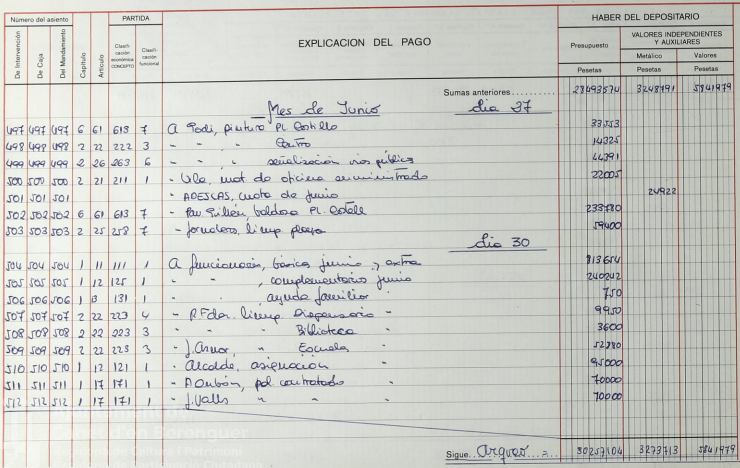 Número del asiento PARTIDA EXPLICACION DEL PAGO HABER DEL DEPOSITARIO
De Intervención De Caja Del Mandamiento Capítulo Artículo Clasificación económica CONCEPTO Clasificación funcional Presupuesto VALORES INDEPENDIENTES Y AUXILIARES
Metálico Valores
Pesetas Pesetas Pesetas
Sumas anteriores 28493574 3248791 5841979
Mes de Junio dia 27
497 497 497 6 61 613 7 A Todi, pintura Pl. Castillo 33553
498 498 498 2 22 222 3 - - , Centro 14325
499 499 499 2 26 263 6 - - , señalización vias públicas 44391
500 500 500 2 21 211 1 - Vila, mat de oficina suministrado 22005
501 501 501 - ADESLAS, cuota de junio 24922
502 502 502 6 61 613 7 - Pau Guillén, baldosa Pl. 233780
503 503 503 2 25 258 7 - Jornalero, limp playa 59400
dia 30
504 504 504 1 11 111 1 A funcionarios, básicas junio y extra 813654
505 505 505 1 12 125 1 - - , complementarias junio 240242
506 506 506 1 13 131 1 - - , ayuda familiar - 750
507 507 507 2 22 223 4 - R.Fdez. limp. Dispensario - 9950
508 508 508 2 22 223 3 - - - Biblioteca - 3600
509 509 509 2 22 223 3 - J. , - Escuela - 52780
510 510 510 1 12 121 1 - Alcalde, asignación - 95000
511 511 511 1 17 171 1 - A , pol contratado - 70000
512 512 512 1 17 171 1 - J. Valls " " - 70000
Sigue Arqueo 30257104 3273713 5841979